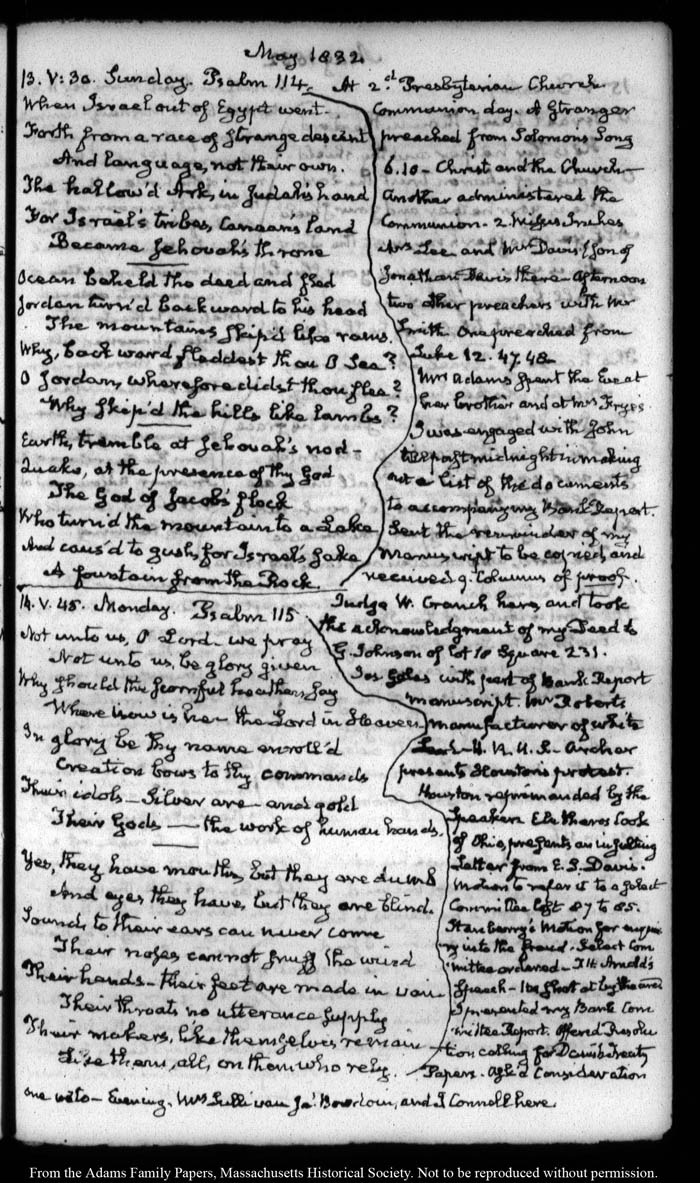 May 1832
13. V:30. Sunday. Psalm 114.
When Israel out of Egypt went
Forth from a race of strange descent
And language, not their own.
The hallow'd Ark, in Judah's hand
For Israel's tribes, Canaan's land
Became Jehovah's throne
Ocean beheld the deed and fled
Jordan turn'd backward to his head
The mountains skip'd like rams.
Why, backward fleddest thou O Sea?
O Jordan, wherefore didst thou flee?
Why skip'd the hills like lambs?
Earth, tremble at Jehovah's nod-
Quake, at the presence of thy God
The God of Jacob's flock
Who turn'd the mountain to a Lake
And caus'd to gush, for Israel's sake
A fountain from the Rock.
At 2.d Presbyterian Church
Communion day. A Stranger
preached from Solomon's Song
6.10- Christ and the Church-
Another administered the
Communion- 2 Misses
Mrs Lee and Davis son of
Jonathan Davis there- Afternoon
two other preachers with Mr
Smith One preached from
Luke 12. 47.48-
Mrs Adams spent the Eve at
her brother and at Mrs Frye's
I was engaged with John
till past midnight in making
out a list of the documents
to accompany my Bank Report.
Sent the remainder of my
Manuscript to be copied, and
received 9. Columns of proof.
14. V. 45. Monday. Psalm 115
Not unto us, O Lord- we pray
Not unto us, be glory given
Why should the scornful heathen say
Where now is the Lord in Heaven
In glory be Thy name enroll'd
Creation bows to thy commands
Their idols- Silver are- and gold
Their Gods — the work of human hands.
Yes, they have mouths, but they are dumb
And eyes they have, but they are blind.
Sounds to their ears can never come
Their noses cannot snuff the wind
Their hands- their feet are made in vain
Their throats no utterance supply
Their makers, like themselves remain
Like them, all, on them who rely.
Judge W. Cranch here, and took
the acknowledgment of my Deed to
G. Johnson of lot 10 Square 231.
Jos Gales with part of Bank Report
manuscript. Mr Roberts
manufacturer of white
Lead- H. R. U. S. Archer
presents Houston's protest.
Houston reprimanded by the
Speaker. Eleutheros Cook
of Ohio, presents an insulting
Letter from E. S. Davis.
Motion to refer it to a select
Committee lost 87 to 85.
Stanberry's Motion for
into the fraud. Select Com
mittee ordered- T. H. Arnold's
Speech- Is shot at by
I presented my Bank Com
mittee Report. Offered Resolu
tion calling for Treaty
Papers. Ask'd Consideration
one Evening. Mrs Sullivan Ja.s Bowdoin, and J Connell here
From the Adams Family Papers, Massachusetts Historical Society. Not to be reproduced without permission.